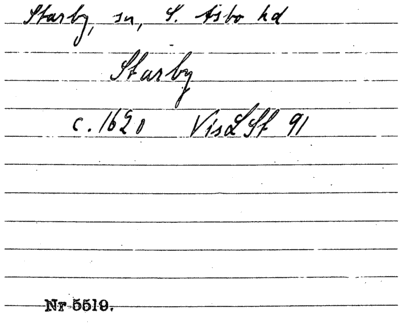 Starby, sn, S. Åsbo hd
Starby
c. 1620 VisLSt 91
Nr 5519.